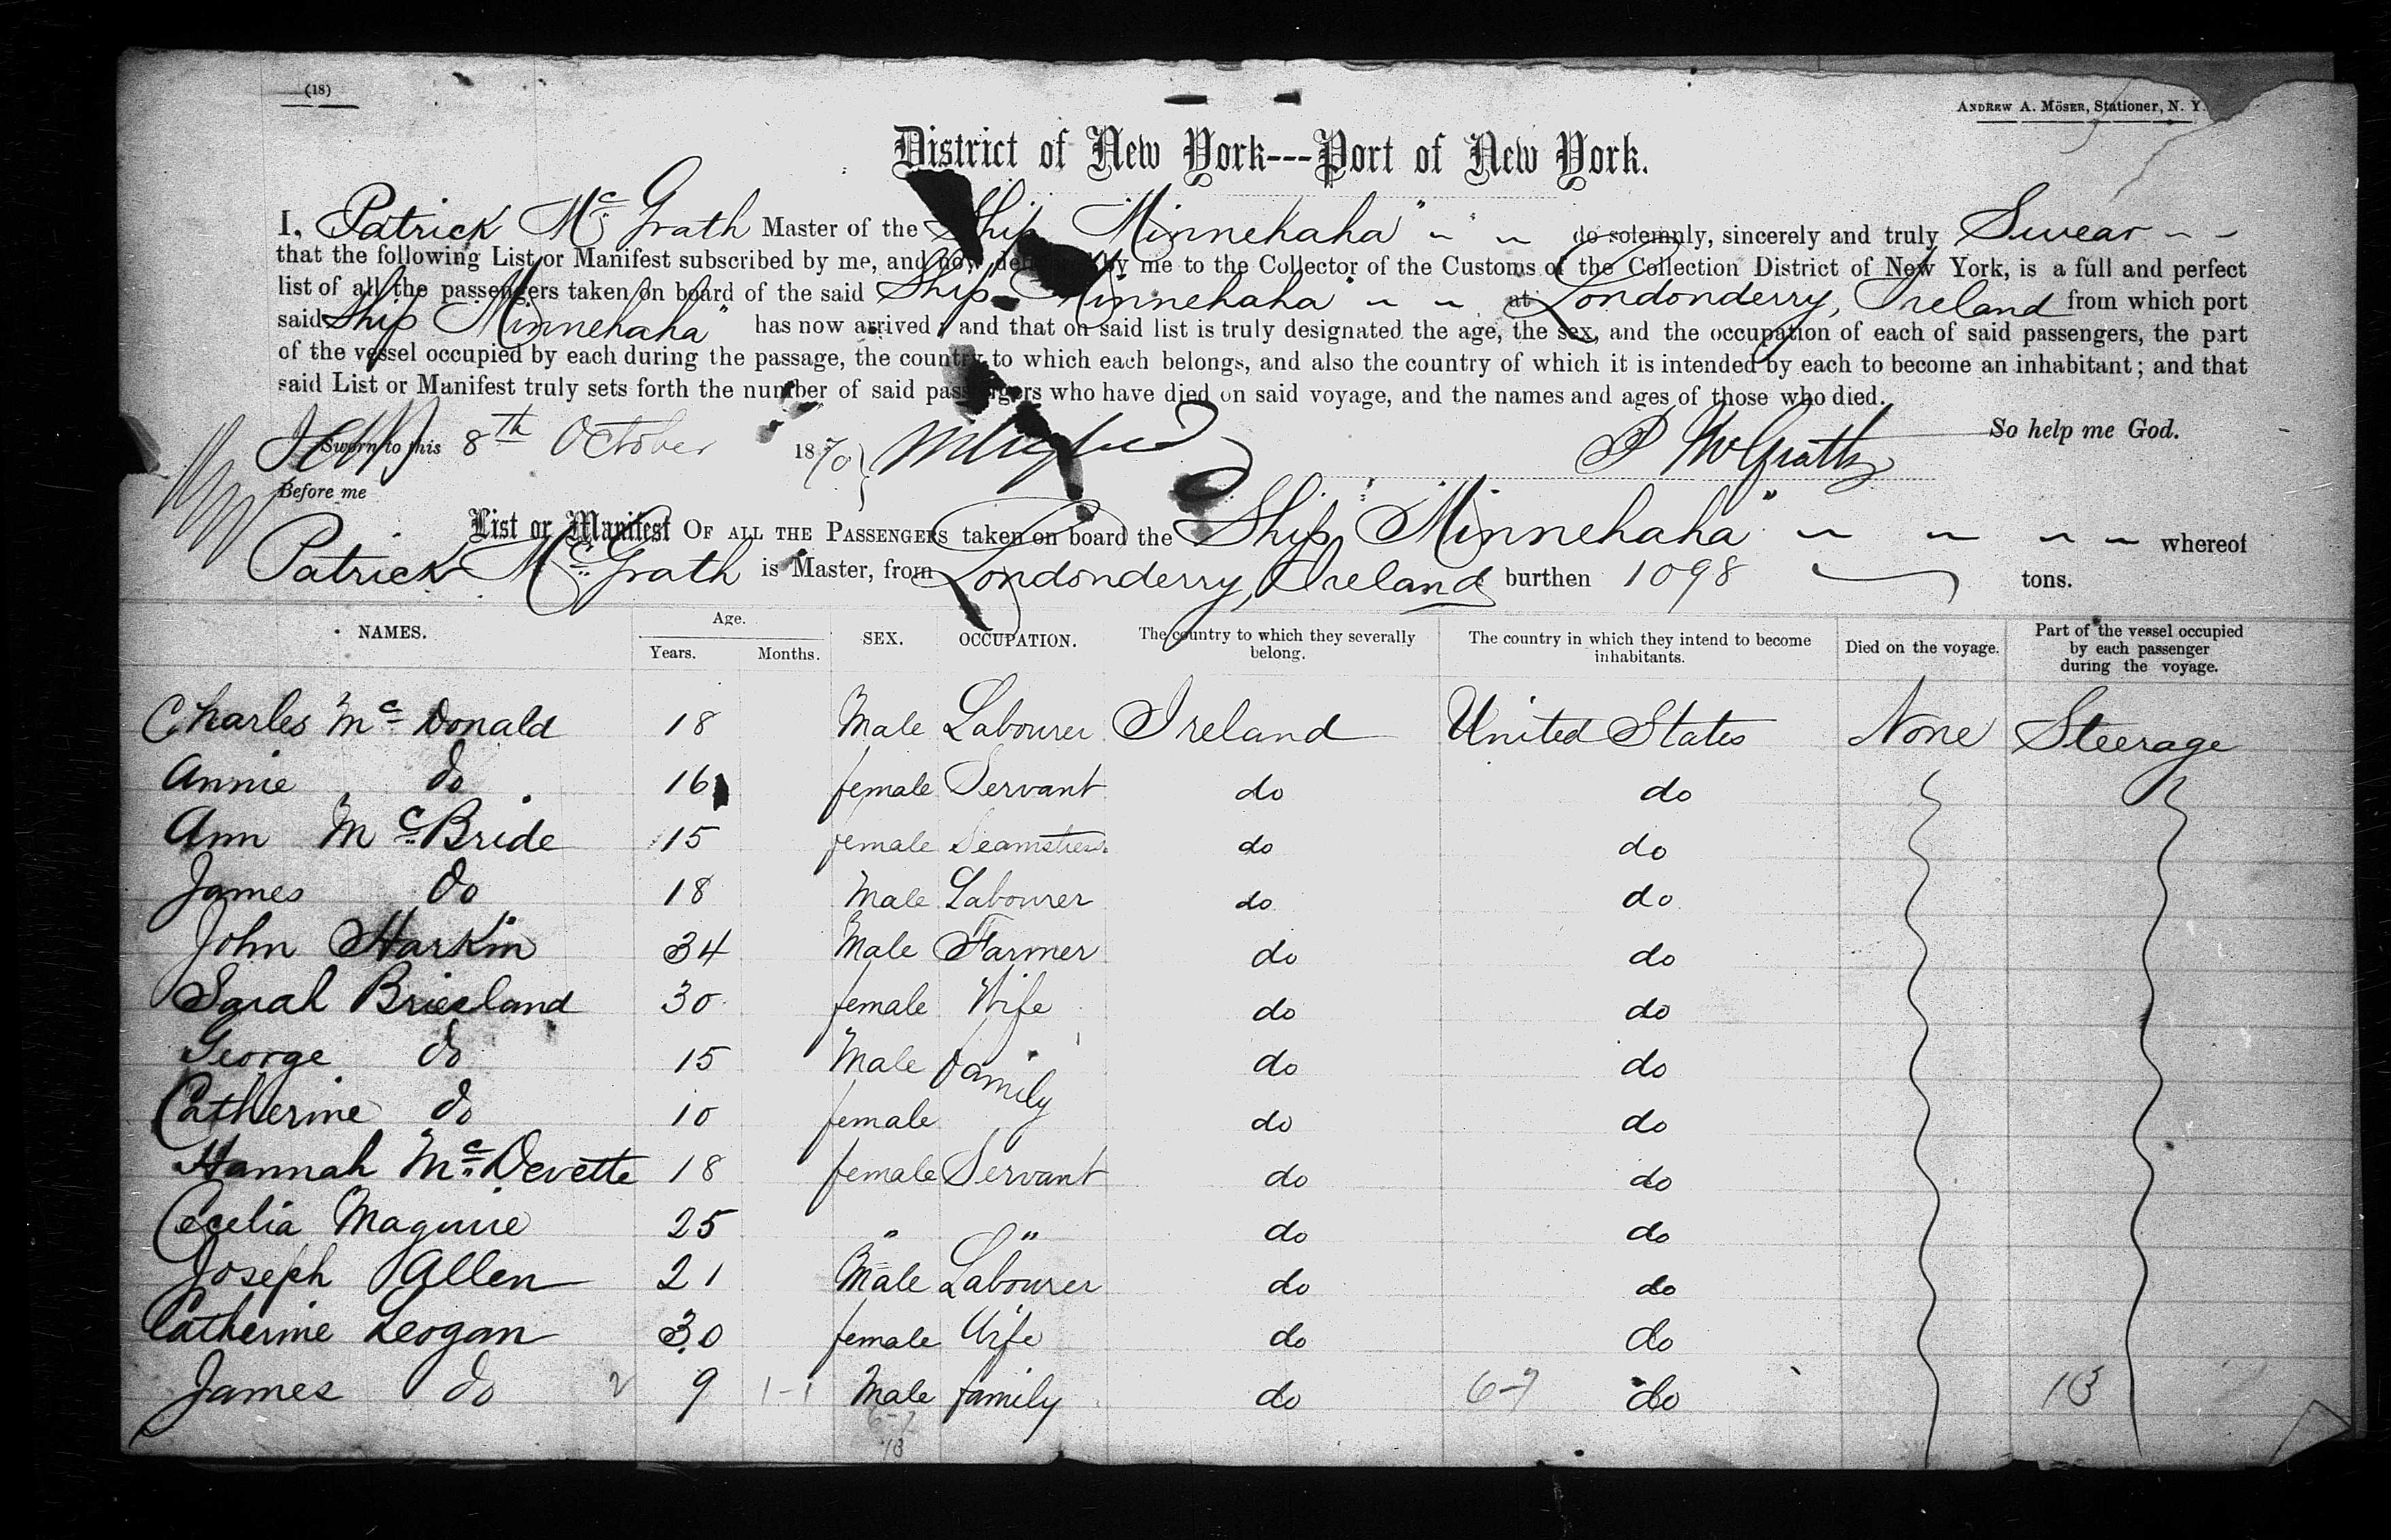 (18)
ANDREW A. MÖSER, Stationer, N. Y.
District of New York---Port of New York.
I, Patrick Mc Grath Master of the Ship Minnehaha" do solemnly, sincerely and truly Swear
that the following List or Manifest subscribed by me, and now by me to the Collector of the Customs of the Collection District of New York, is a full and perfect
list of all the passengers taken on board of the said Ship Minnehaha" at Londonderry, Ireland from which port
said Ship Minnehaha" has now arrived; and that on said list is truly designated the age, the sex, and the occupation of each of said passengers, the part
of the vessel occupied by each during the passage, the country to which each belongs, and also the country of which it is intended by each to become an inhabitant; and that
said List or Manifest truly sets forth the number of said passengers who have died on said voyage, and the names and ages of those who died.
So help me God.
Sworn to this 8th October 1870 P McGrath
Before me
List or Manifest OF ALL THE PASSENGERS taken on board the Ship Minnehaha" whereof
Patrick Mc Grath is Master, from Londonderry, Ireland burthen 1098 tons.
NAMES. Age. Years. Months. SEX. OCCUPATION. The country to which they severally belong. The country in which they intend to become inhabitants. Died on the voyage. Part of the vessel occupied by each passenger during the voyage.
Charles Mc Donald 18 Male Labourer Ireland United States None Steerage
Annie do 16 female Servant do do
Ann Mc Bride 15 female Seamstress do do
James do 18 Male Labourer do do
John Harkin 34 Male Farmer do do
Sarah Briesland 30 female Wife do do
George do 15 Male family do do
Catherine do 10 female do do
Hannah Mc Devette 18 female Servant do do
Cecelia Maguire 25 " " do do
Joseph Allen 21 Male Labourer do do
Catherine Leogan 30 female Wife do do
James do 2 9 1-1 Male family do 6-7 do 13
6-7
13